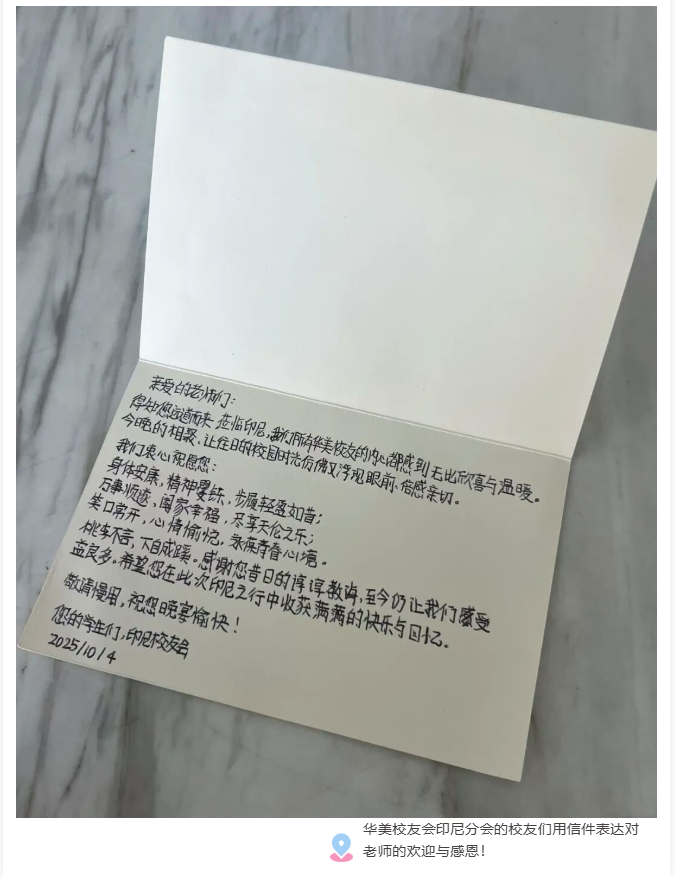 亲爱的老师们：
得知您远道而来，莅临印尼，我们所有华美校友的内心都感到无比欣喜与温暖。
今晚的相聚，让往日的校园时光仿佛又浮现眼前，倍感亲切。
我们衷心祝愿您：
身体安康，精神矍铄，步履轻盈如昔；
万事顺遂，阖家幸福，尽享天伦之乐；
笑口常开，心情愉悦，永葆青春心境。
桃李不言，下自成蹊。感谢您昔日的谆谆教诲，至今仍让我们感受
益良多。希望您在此次印尼之行中收获满满的快乐与回忆。
敬请慢用，祝您晚宴愉快！
您的学生们，印尼校友会
2025/10/4
华美校友会印尼分会的校友们用信件表达对
老师的欢迎与感恩！